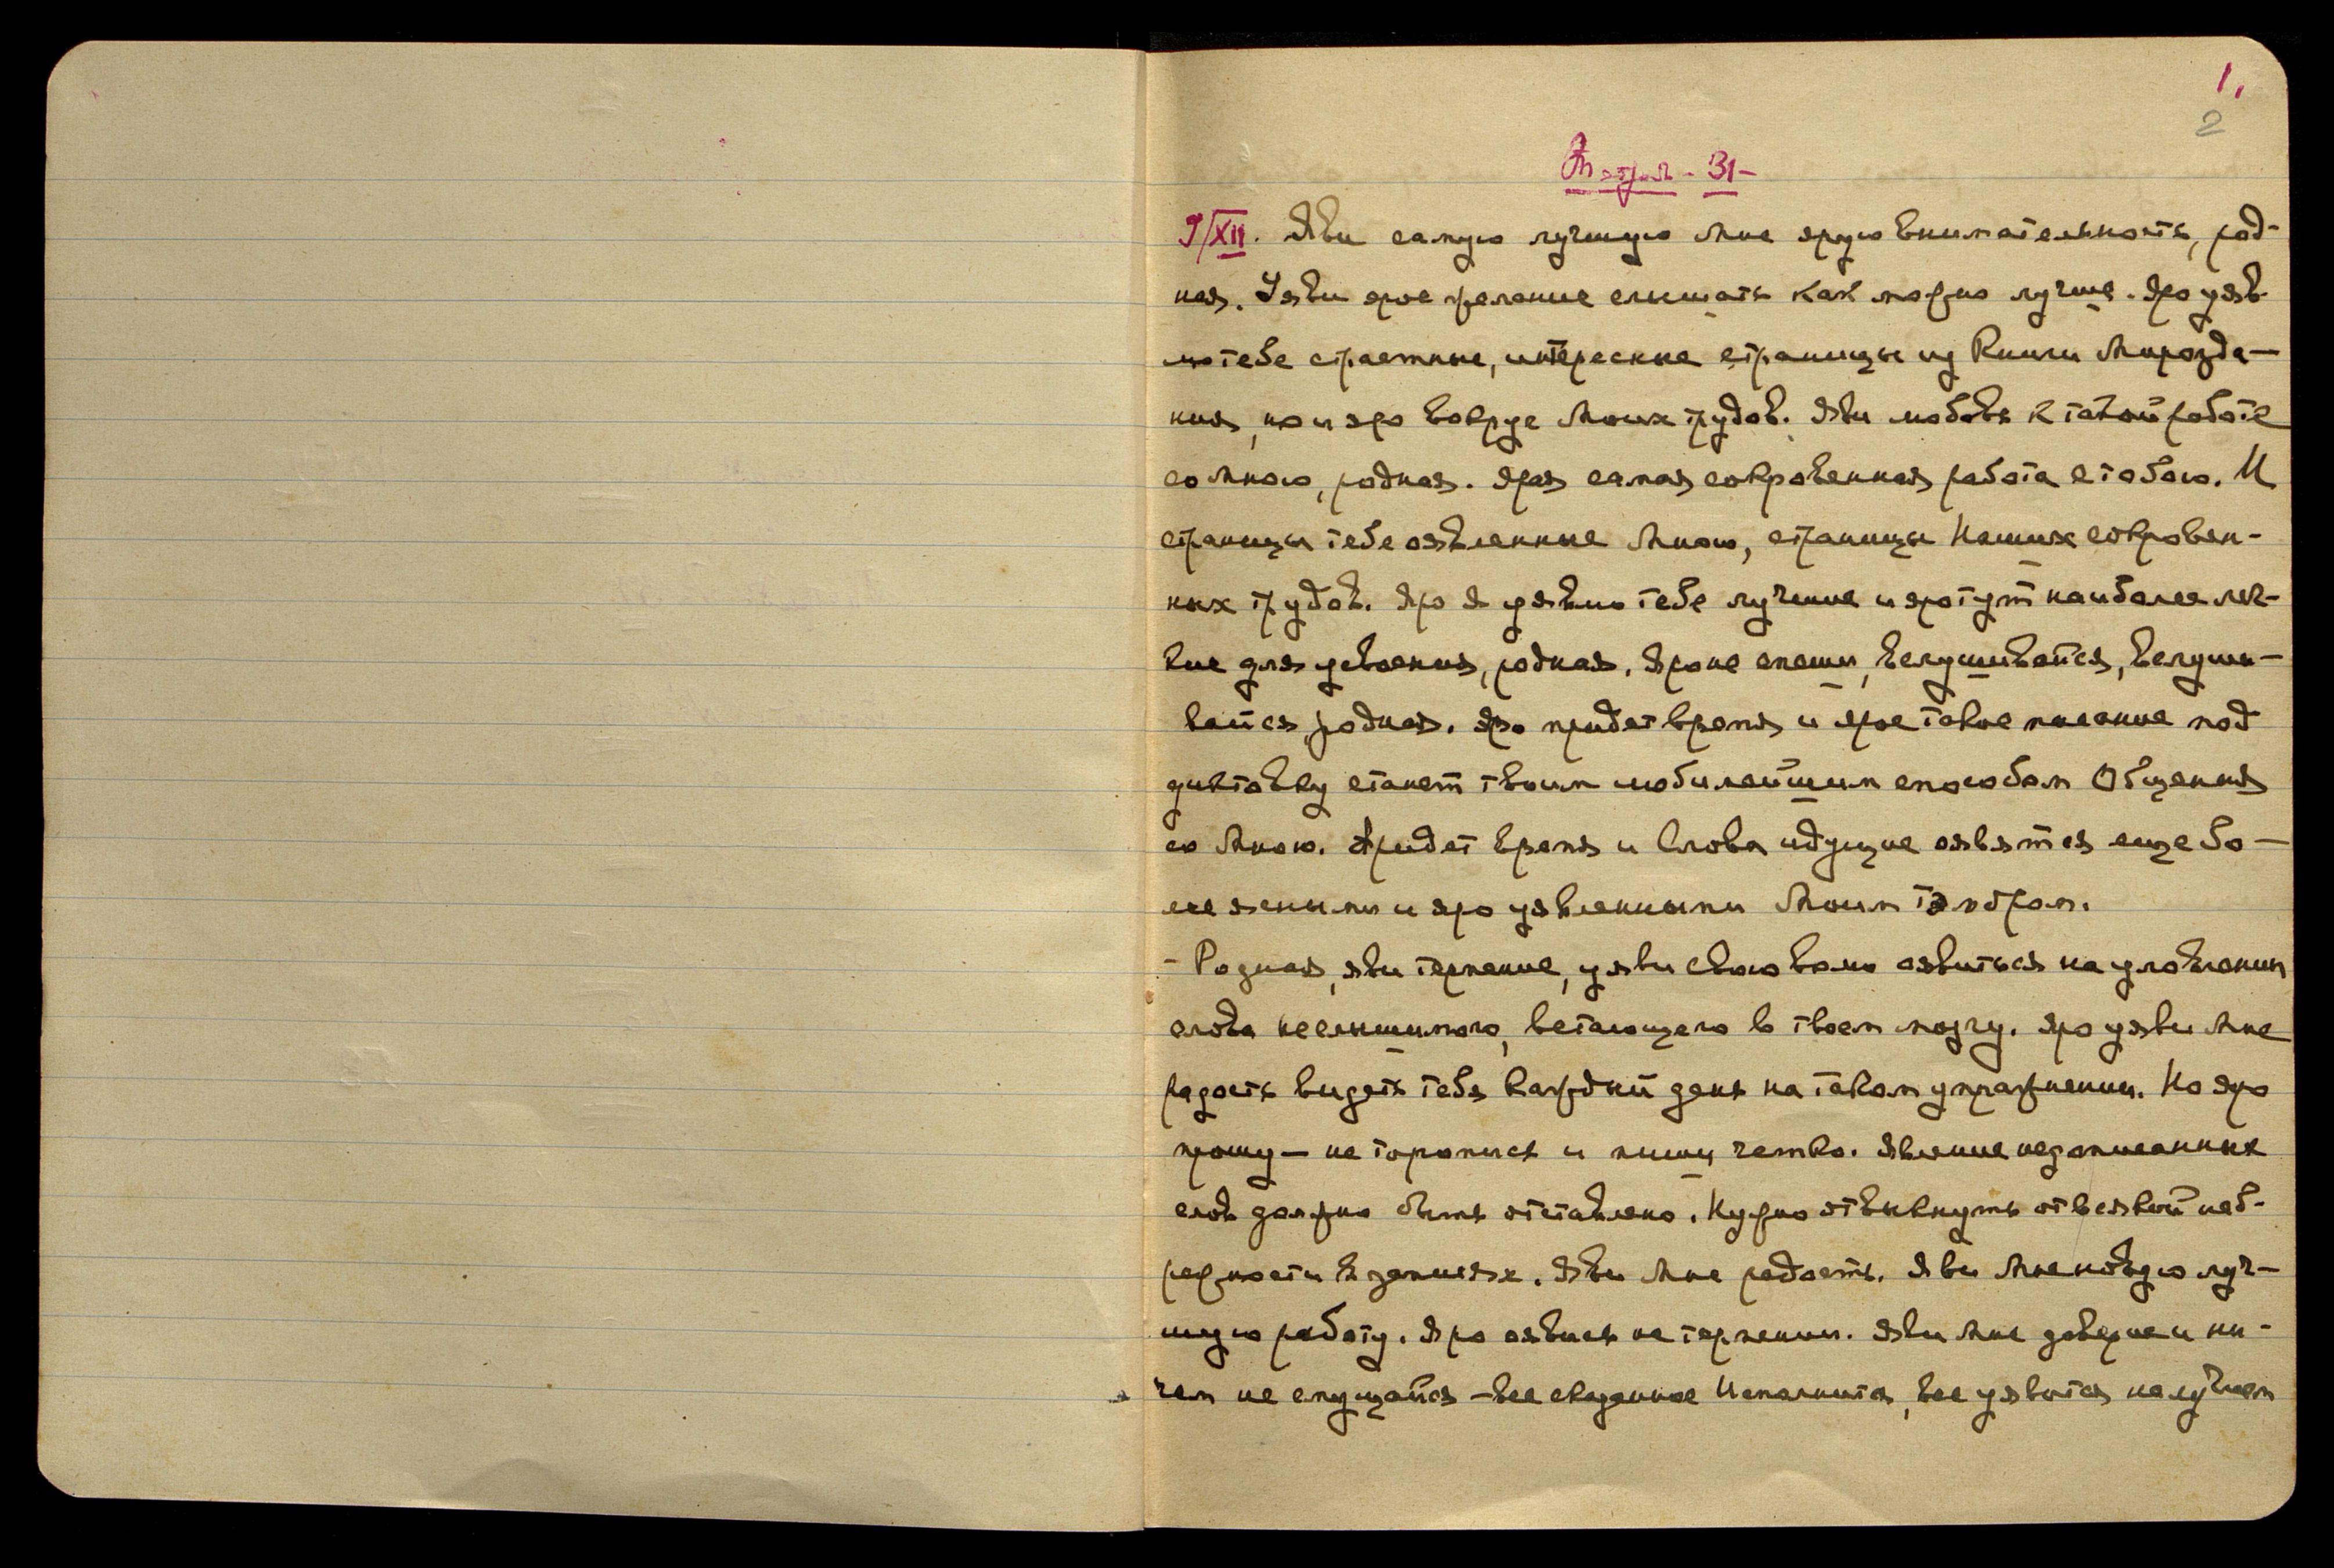 1.
2
- 31 -
9/XII. Яви самую лучшую Мне ярую внимательность, род-
ная. Уяви ярое желание слышать как можно лучше. Яро уяв-
лю тебе страстные, интересные страницы из Книги Мирозда-
ния, но и яро вокруг Моих трудов. Яви любовь к такой работе
со Мною, родная. Ярая самая сокровенная работа с тобою. И
страницы тебе оявленные Мною, страницы Наших сокровен-
ных трудов. Яро Я уявлю тебе лучшие и яро тут наиболее лег-
кие для усвоения, родная. Яро не спеши, вслушивайся, вслуши-
вайся, родная. Яро придет время и ярое такое писание под
диктовку станет твоим любимейшим способом Общения
со Мною. Придет время и Слова идущие оявятся еще бо-
лее ясными и яро уявленными Моим тембром.
- Родная, яви терпение, уяви свою волю оявиться на уловлении
слова неслышимого, встающего в твоем мозгу. Яро уяви Мне
радость видеть тебя каждый день на таком упражнении. Но яро
прошу — не торопись и пиши четко. Явление недописанных
слов должно быть оставлено. Нужно отвыкнуть от всякой неб-
режности в записях. Яви Мне радость. Яви Мне новую луч-
шую работу. Яро оявись на терпении. Яви Мне доверие и ни-
чем не смущайся — все сказанное Исполнится, все уявится на лучшем